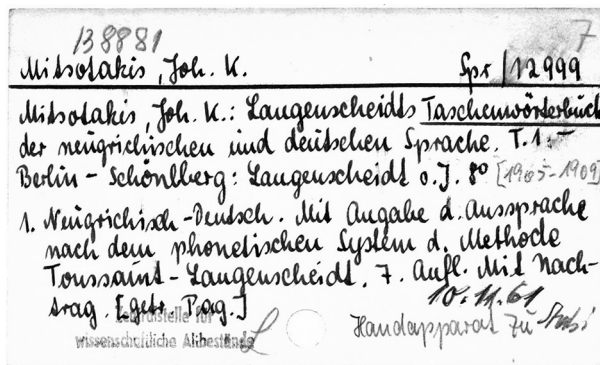 B 8881 7
Mitsotakis, Joh. K. Spr/12999
Mitsotakis, Joh. K.: Langenscheidts Taschenwörterbuch
der neugrichischen und deutschen Sprache. T. 1.-
Berlin-Schöneberg: Langenscheidt o.J. 8° [1905-1909]
1. Neugrichisch-Deutsch. Mit Angabe d. Aussprache
nach dem phonetischen System d. Methode
Toussaint-Langenscheidt. 7. Aufl. Mit Nach-
trag. [getr. Pag.] 10.11.61
Zentralstelle für Handapparat Zu
wissenschaftliche Altbestände